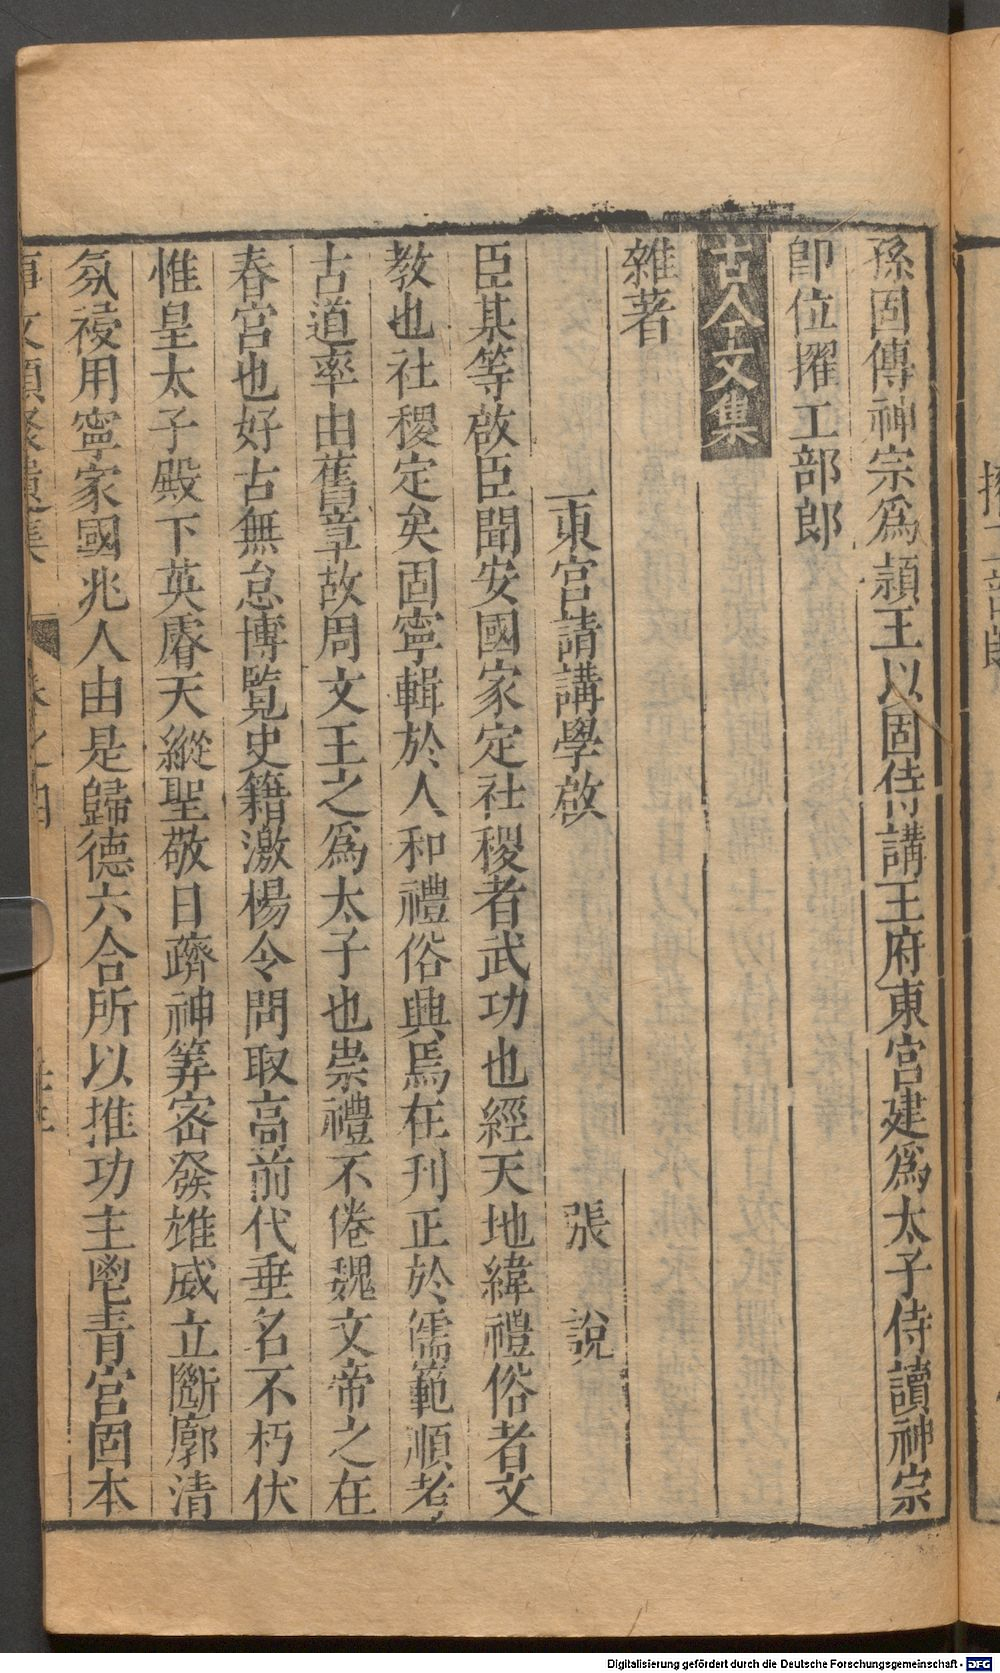 孫固傳神宗爲頴王以固侍講王府東宮建爲太子侍讀神宗
卽位擢工部郎
古今文集
雜著
東宮請講學啟 張說
臣某等啟臣聞安國家定社稷者武功也經天地緯禮俗者文
教也社稷定矣固寧輯於人和禮俗興焉在刊正於儒範順考
古道率由舊章故周文王之爲太子也崇禮不倦魏文帝之在
春宮也好古無怠博覽史籍激楊令問取高前代垂名不朽伏
惟皇太子殿下英睿天縱聖敬日躋神筭密發雄威立斷廓清
氛祲用寧家國兆人由是歸德六合所以推功主鬯青宮固本
事文類聚遺集 卷之四
Digitalisierung gefördert durch die Deutsche Forschungsgemeinschaft - DFG